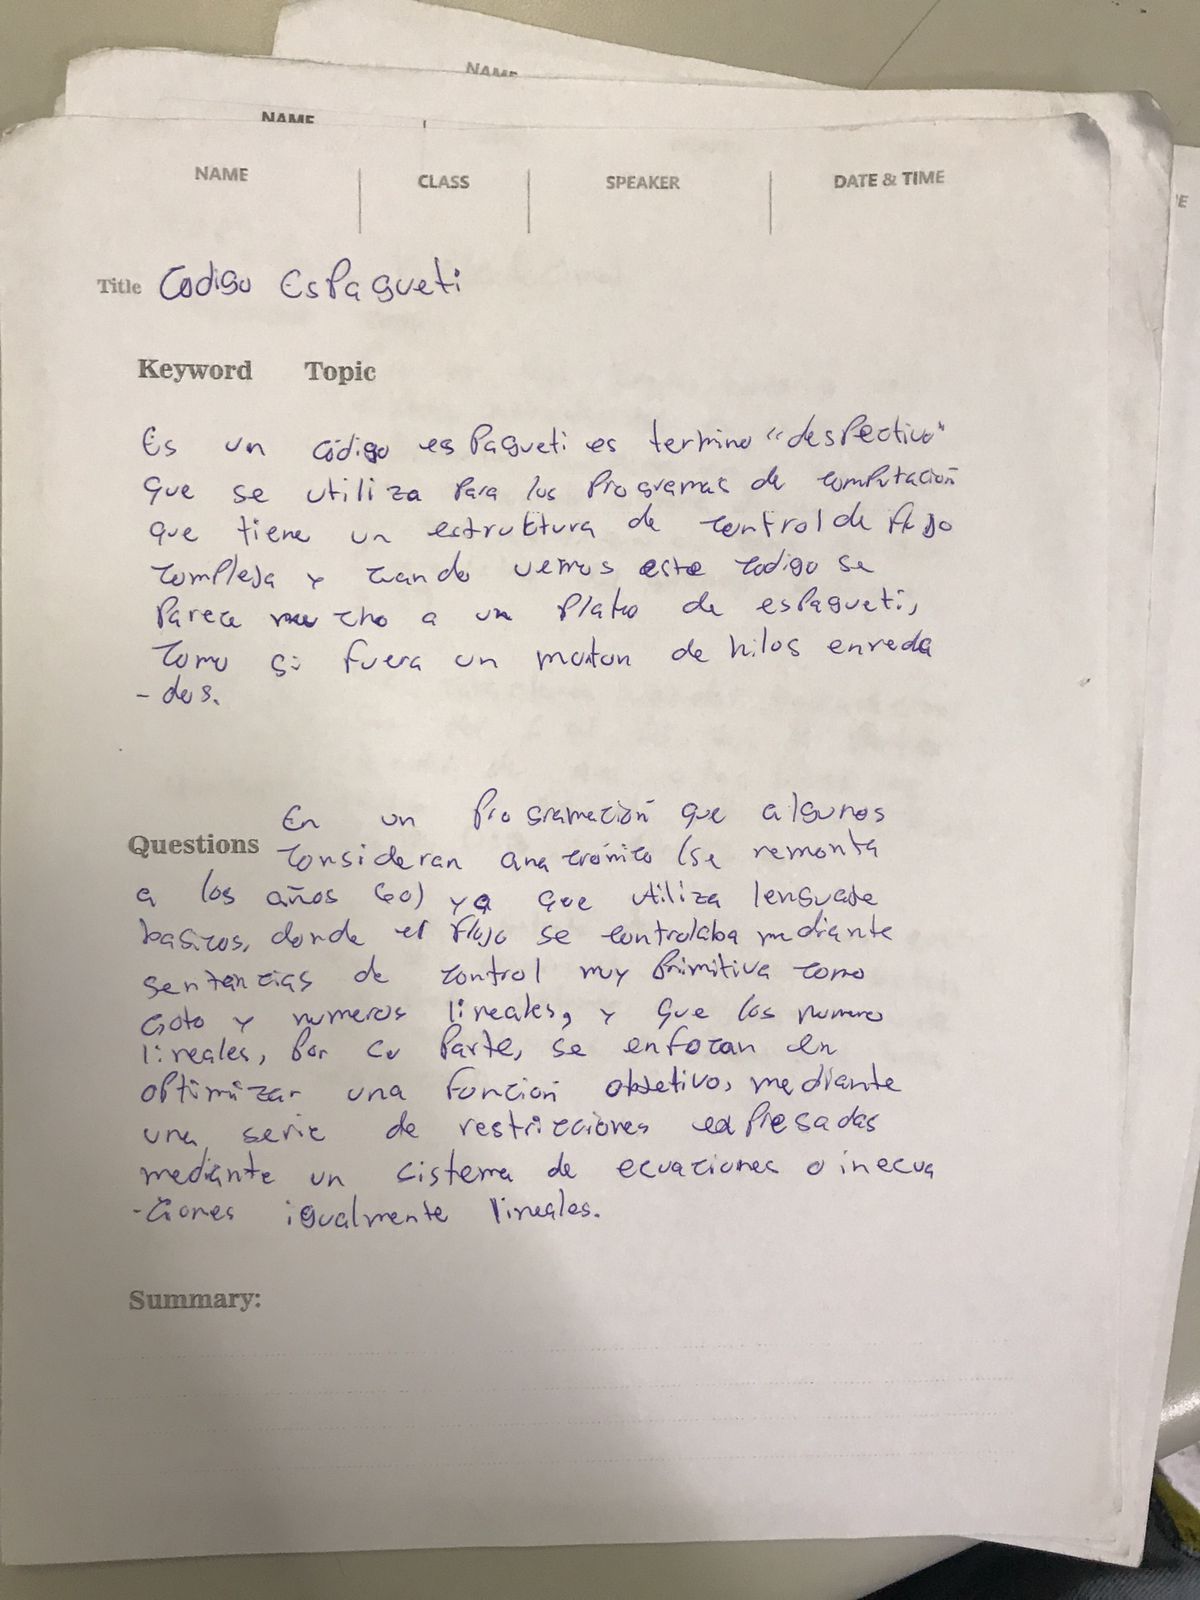 NAME
NAME
NAME CLASS SPEAKER DATE & TIME
Title Codigo Espagueti
Keyword Topic
Es un código espagueti es termino "despectivo"
que se utiliza para los programas de computación
que tiene un estruktura de control de flujo
compleja y cuando vemos este codigo se
parece mucho a un plato de espagueti,
como si fuera un monton de hilos enreda
- dos.
En un programación que algunos
Questions consideran anacrónico (se remonta
a los años 60) ya que utiliza lenguaje
basicos, donde el flujo se controlaba mediante
sentencias de control muy primitiva como
Goto y numeros lineales, y que los numero
lineales, por cu parte, se enfocan en
optimizar una función objetivo, mediante
una serie de restricciones expresadas
mediante un cistema de ecuaciones o inecua
-ciones igualmente lineales.
Summary: